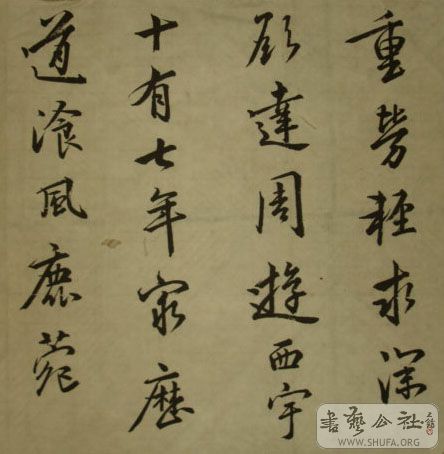 重勞輕求深
願達周遊西宇
十有七年窮歷
道湌風鹿菀
書藝公社
WWW.SHUFA.ORG